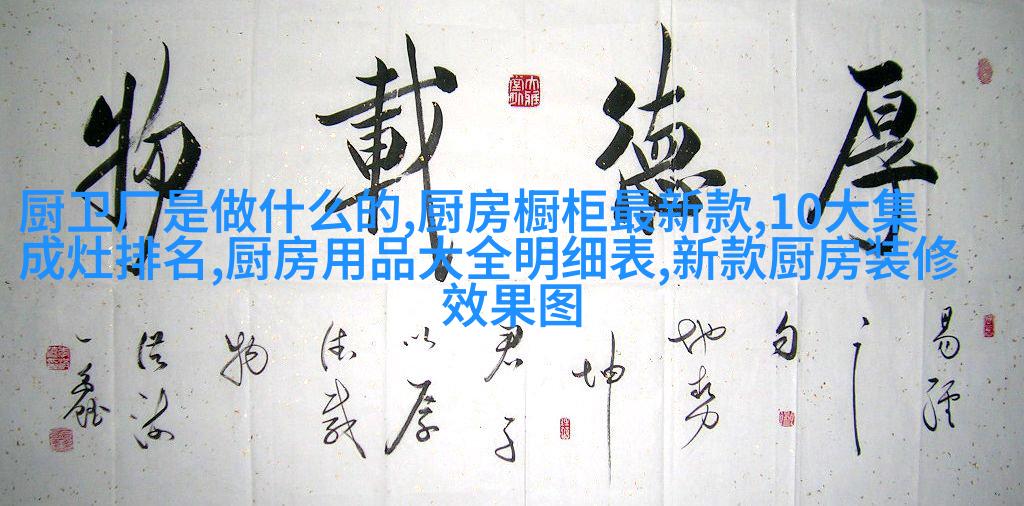 厚德載物
厨卫厂是做什么的,厨房橱柜最新款,10大集
成灶排名,厨房用品大全明细表,新款厨房装修
效果图
易經
之
句
地势
坤
君子
以厚
德载
物
一鑫